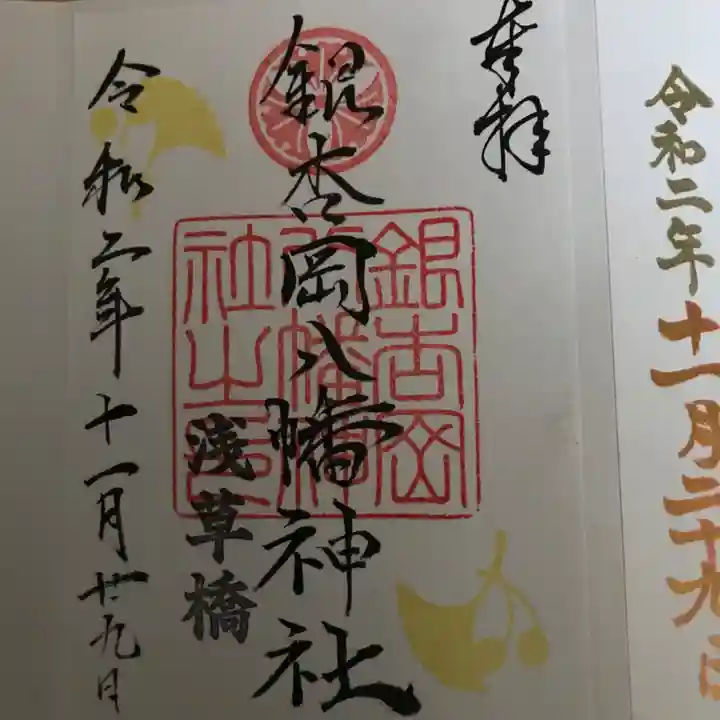 令和二年十一月二十九日
奉拝
銀杏岡八幡神社
浅草橋
令和二年十一月廿九日